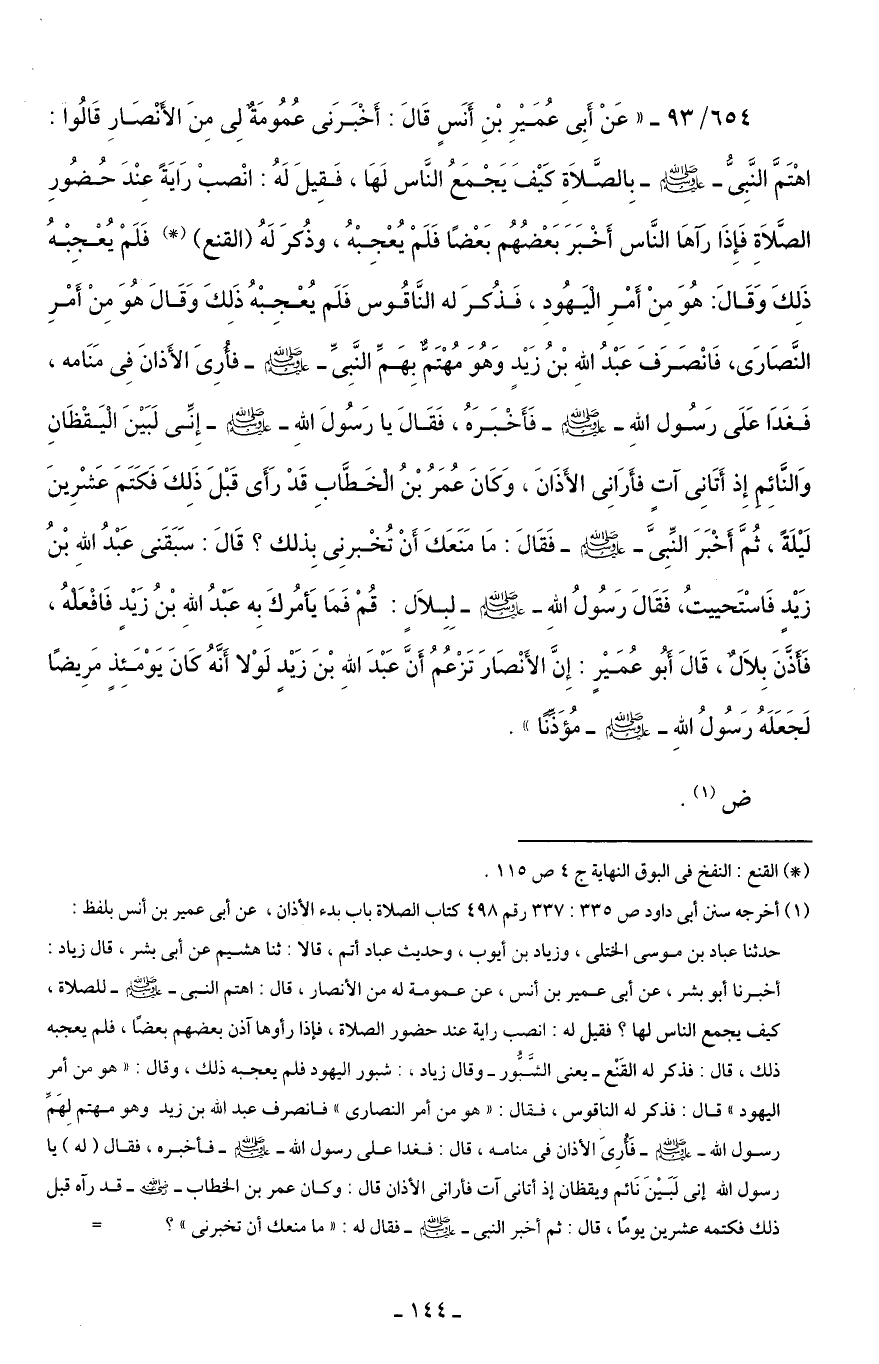 ٦٥٤/ ٩٣ ـ « عَنْ أَبِى عُمَيْرِ بْنِ أَنَسٍ قَالَ : أَخْبَرَنِى عُمُومَةٌ لِى مِنَ الأَنْصَارِ قَالُوا :
اهْتَمَّ النَّبِىُّ ـ ﷺ ـ بِالصَّلاَةِ كَيْفَ يَجْمَعُ النَّاس لَهَا ، فَقِيلَ لَهُ : انْصبْ رَايَةً عِنْدَ حُضُورِ
الصَّلاَةِ فَإِذَا رآهَا النَّاس أَخْبَرَ بَعْضُهُم بَعْضًا فَلَمْ يُعْجِبْهُ ، وذُكِرَ لَهُ (القنع) (*) فَلَمْ يُعْجِبْهُ
ذَلِكَ وَقَالَ: هُوَ مِنْ أَمْرِ الْيَهُودِ ، فَذُكِرَ له النَّاقُوس فَلَم يُعْجِبْهُ ذَلِكَ وَقَالَ هُوَ مِنْ أَمْرِ
النَّصَارَى، فَانْصَرَفَ عَبْدُ اللهِ بْنُ زَيْدٍ وَهُوَ مُهْتَمٌّ بِهَمِّ النَّبِىِّ ـ ﷺ ـ فأُرِىَ الأذَانَ فِى مَنَامه ،
فَغَدَا عَلَى رَسُولِ اللهِ ـ ﷺ ـ فَأَخْبَرَهُ ، فَقَالَ يا رَسُولَ اللهِ ـ ﷺ ـ إنِّى لَبَيْنَ الْيَقْظَانِ
وَالنَّائِمِ إذ أتَانِى آتٍ فأرَانِى الأذَانَ ، وَكَانَ عُمَرُ بْنُ الْخَطَّابِ قَدْ رَأى قَبْلَ ذَلِكَ فَكَتَمَ عِشْرِينَ
لَيْلَةً ، ثُمَّ أَخْبَرَ النَّبِىَّ ـ ﷺ ـ فَقَالَ : مَا مَنَعَكَ أَنْ تُخْبِرنِى بذلك ؟ قَالَ : سَبَقَنِى عَبْدُ اللهِ بْنُ
زَيْدٍ فَاسْتَحييتُ، فَقَالَ رَسُولُ اللهِ ـ ﷺ ـ لِبِلاَلٍ : قُمْ فَمَا يَأمُركَ بِه عَبْدُ اللهِ بْنُ زَيْدٍ فَافْعَلْهُ ،
فَأَذَّنَ بِلاَلٌ ، قَالَ أَبُو عُمَيْرٍ : إِنَّ الأَنْصَارَ تَزْعُمُ أَنَّ عَبْدَ اللهِ بْنَ زَيْدٍ لَوْلا أَنَّهُ كَانَ يَوْمَئِذٍ مَرِيضًا
لَجَعَلَهُ رَسُولُ اللهِ ـ ﷺ ـ مُؤَذِّنًا » .
ض (١) .
(*) القنع : النفخ فى البوق النهاية ج ٤ ص ١١٥ .
(١) أخرجه سنن أبى داود ص ٣٣٥ : ٣٣٧ رقم ٤٩٨ كتاب الصلاة باب بدء الأذان ، عن أبى عمير بن أنس بلفظ :
حدثنا عباد بن موسى الختلى ، وزياد بن أيوب ، وحديث عباد أتم ، قالا : ثنا هشيم عن أبى بشر ، قال زياد :
أخبرنا أبو بشر ، عن أبى عمير بن أنس ، عن عمومة له من الأنصار ، قال : اهتم النبى ـ ﷺ ـ للصلاة ،
كيف يجمع الناس لها ؟ فقيل له : انصب راية عند حضور الصلاة ، فإذا رأوها آذن بعضهم بعضًا ، فلم يعجبه
ذلك ، قال : فذكر له القَنْع ـ يعنى الشَّبُّور ـ وقال زياد ، : شبور اليهود فلم يعجبه ذلك ، وقال : « هو من أمر
اليهود » قال : فذكر له الناقوس ، فقال : « هو من أمر النصارى » فانصرف عبد الله بن زيد وهو مهتم لِهَمِّ
رسول الله ـ ﷺ ـ فَأُرِىَ الأذان فى منامه ، قال : فغدا على رسول الله ـ ﷺ ـ فأخبره ، فقال ( له ) يا
رسول الله إنى لَبَيْنَ نَائم ويقظان إذ أتانى آت فأرانى الأذان قال : وكان عمر بن الخطاب ـ رضي الله عنه ـ قد رآه قبل
ذلك فكتمه عشرين يومًا ، قال : ثم أخبر النبى ـ ﷺ ـ فقال له : « ما منعك أن تخبرنى » ؟ =
ـ ١٤٤ ـ